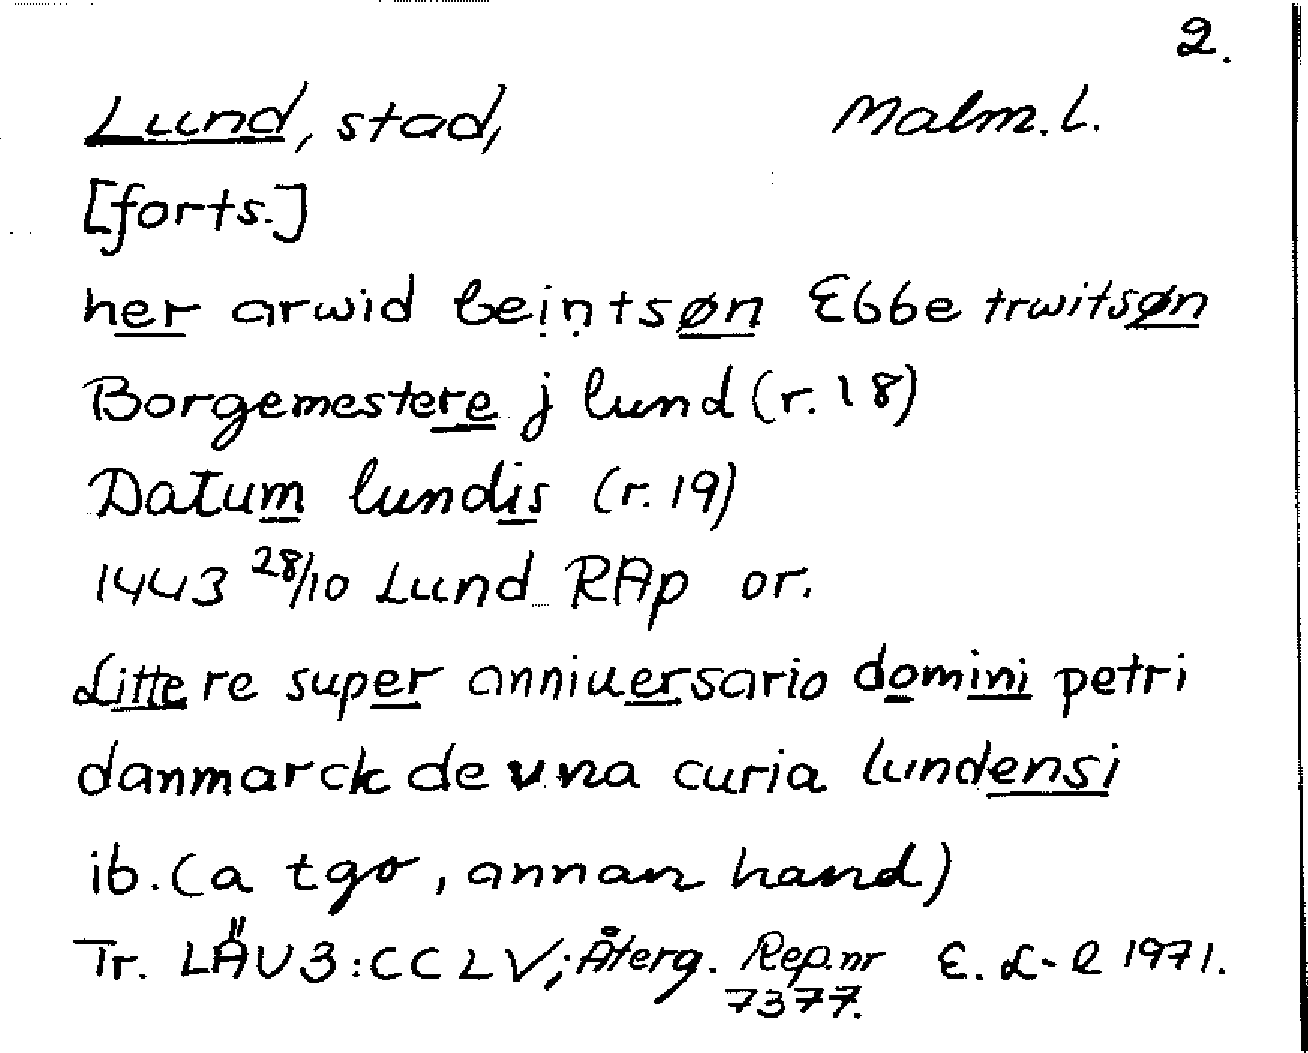 2.
Lund, stad, Malm. L.
[forts.]
her arwid beintsøn Ebbe trwitsøn
Borgemestere j lund (r. 18)
Datum lundis (r. 19)
1443 28/10 Lund RAp or.
Littere super anniuersario domini petri
danmarck de vna curia lundensi
ib. (a tgo, annan hand)
Tr. LÄU 3:CCLV; Återg. Rep. nr E. L-l 1971.
7377.